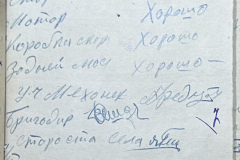 Мотор Хорошо
Коробка скор Хорошо
Задний мост Хорошо
Уч Механик
Бригадир
Староста села